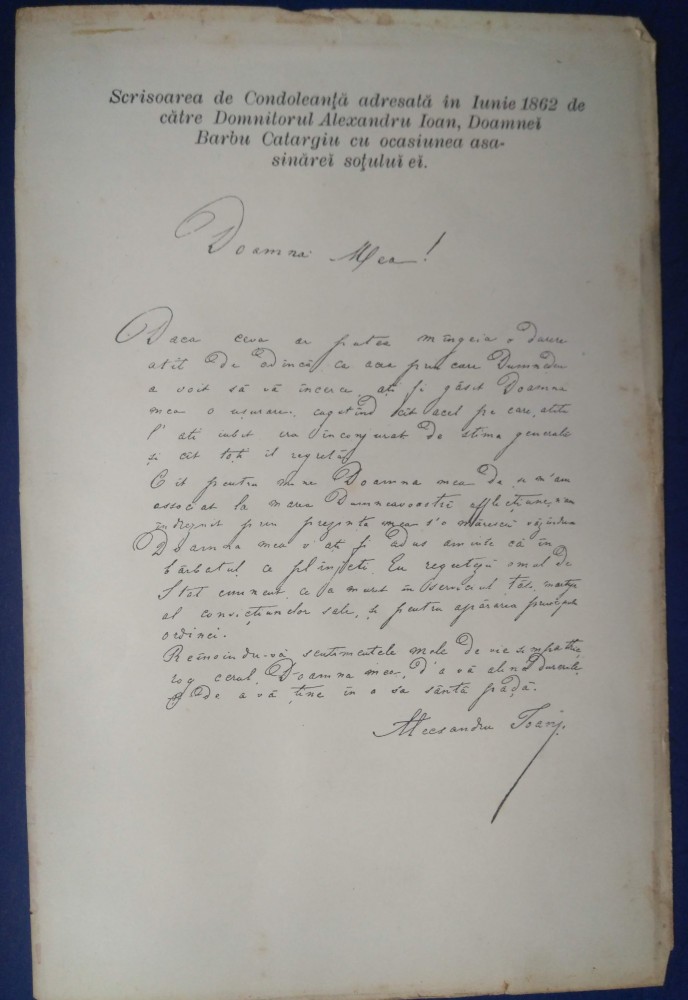 Scrisoarea de Condoleanță adresată in Iunie 1862 de
către Domnitorul Alexandru Ioan, Doamneĭ
Barbu Catargiu cu ocasiunea asa-
sinăreĭ soțuluĭ eĭ.
Doamna Mea!
Daca ceva ar putea mîngeia o durere
atît de adîncă, ca acea prin care Dumnedeu
a voit să vă încerce, ați fi găsit Doamna
mea o ușurare, cît acel pe care atîta
l'ați iubit era incongiurat de stima generale
și cît toți il regretă.
Cit pentru mine Doamna mea, de și m'am
associat la marea Dumneavoastră afflicțiune, n'am
îndresnit prin presența mea s'o măresc
Doamna mea v'ați fi adus aminte că în
bărbatul ce plîngeți. Eu regretez omul de
Stat eminent, ce a murit in serviciul țărei, martir
al convicțiunelor sale, și pentru apărarea
ordinei.
Reînoindu-vă sentimentele mele de vie simpathie
rog cerul, Doamna mea, d'a vă alina durerile
și de a vă ține în a sa sântă pază.
Alecsandru Ioan